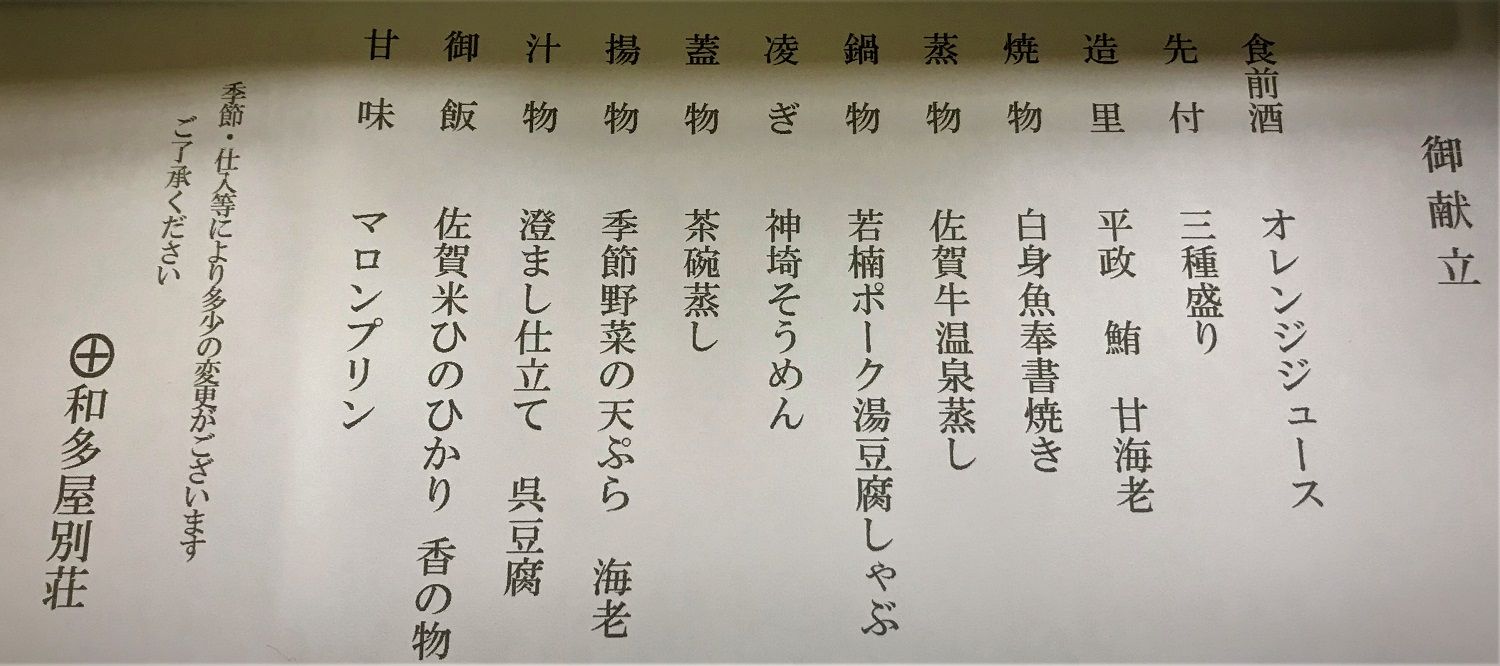 御献立
食前酒 オレンジジュース
先付 三種盛り
造里 平政 鮪 甘海老
焼物 白身魚奉書焼き
蒸物 佐賀牛温泉蒸し
鍋物 若楠ポーク湯豆腐しゃぶ
凌ぎ 神埼そうめん
蓋物 茶碗蒸し
揚物 季節野菜の天ぷら 海老
汁物 澄まし仕立て 呉豆腐
御飯 佐賀米ひのひかり 香の物
甘味 マロンプリン
季節・仕入等により多少の変更がございます
ご了承ください
和多屋別荘